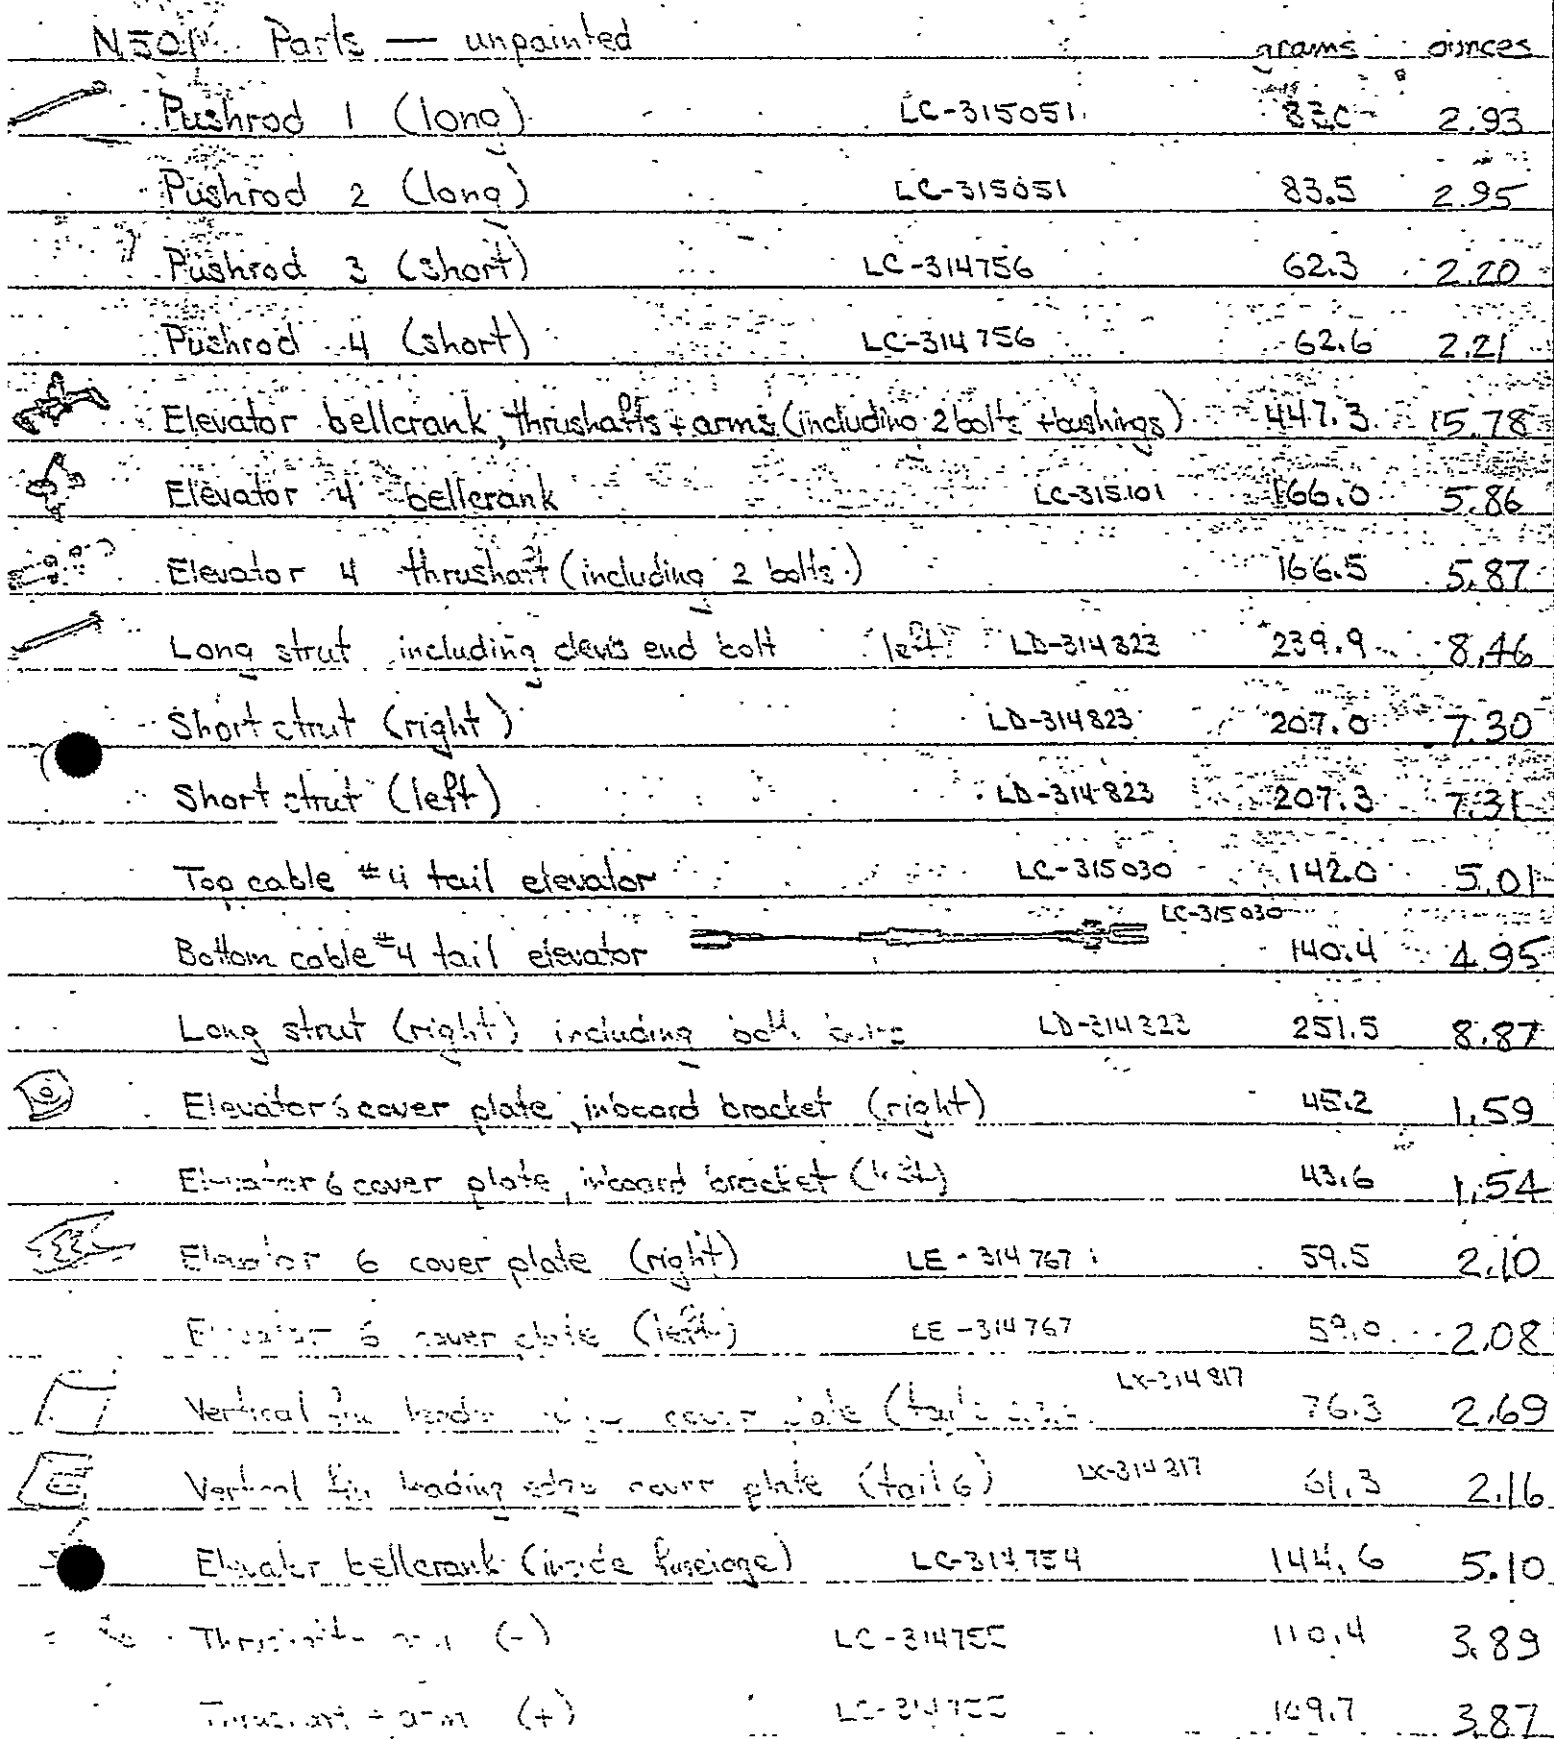 N501 Parts — unpainted grams ounces
Pushrod 1 (long) LC-315051 2.93
Pushrod 2 (long) LC-315051 83.5 2.95
Pushrod 3 (short) LC-314756 62.3 2.20
Pushrod 4 (short) LC-314756 62.6 2.21
Elevator bellcrank, thrushafts + arms (including 2 bolts + bushings) 447.3 15.78
Elevator 4 bellcrank LC-315101 166.0 5.86
Elevator 4 thrushaft (including 2 bolts) 166.5 5.87
Long strut including clevis end bolt left LD-314823 239.9 8.46
Short strut (right) LD-314823 207.0 7.30
Short strut (left) LD-314823 207.3 7.31
Top cable #4 tail elevator LC-315030 142.0 5.01
LC-315030
Bottom cable #4 tail elevator 140.4 4.95
Long strut (right) including bolt LD-314823 251.5 8.87
Elevator 6 cover plate, inboard bracket (right) 45.2 1.59
Elevator 6 cover plate, inboard bracket (left) 43.6 1.54
Elevator 6 cover plate (right) LE-314767 59.5 2.10
Elevator 6 cover plate (left) LE-314767 59.0 2.08
LX-314817
Vertical fin cover plate (tail 76.3 2.69
Vertical fin leading edge cover plate (tail 6) LX-314817 61.3 2.16
Elevator bellcrank (inside fuselage) LC-314754 144.6 5.10
arm (-) LC-314755 110.4 3.89
arm (+) LC-314755 109.7 3.87